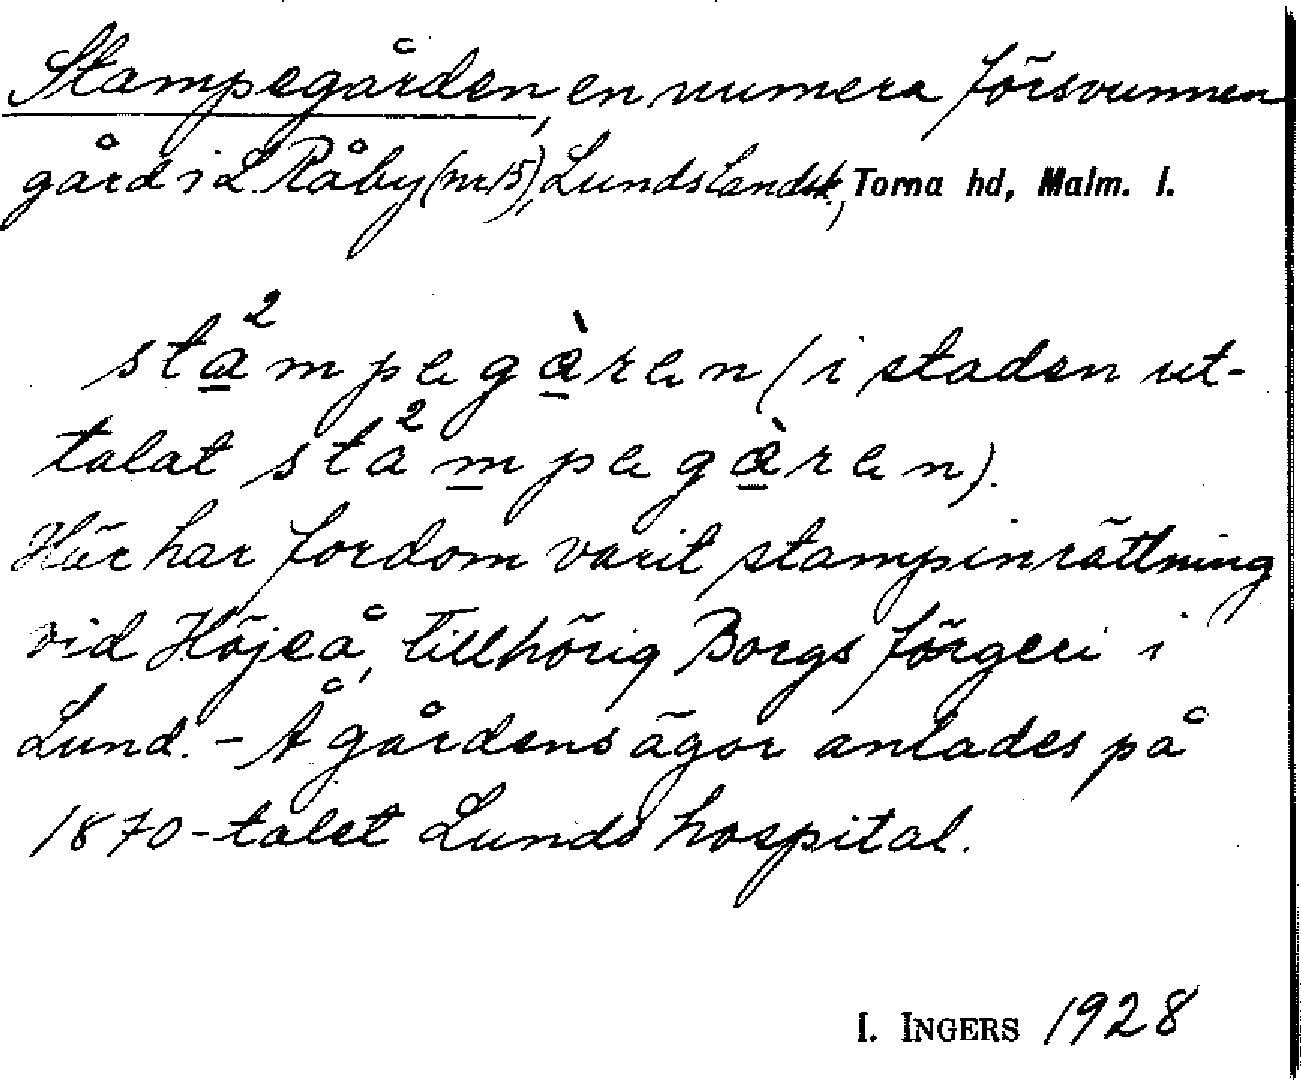 Stampegården, en numera försvunnen
gård i L. Råby (nr 15), Lunds landsk., Torna hd, Malm. l.
sta²mpegàren (i staden ut-
talat sta²mpegæ̀ren).
Här har fordom varit stampinrättning
vid Höjeå, tillhörig Borgs färgeri i
Lund. - Å gårdens ägor anlades på
1870-talet Lunds hospital.
I. INGERS 1928